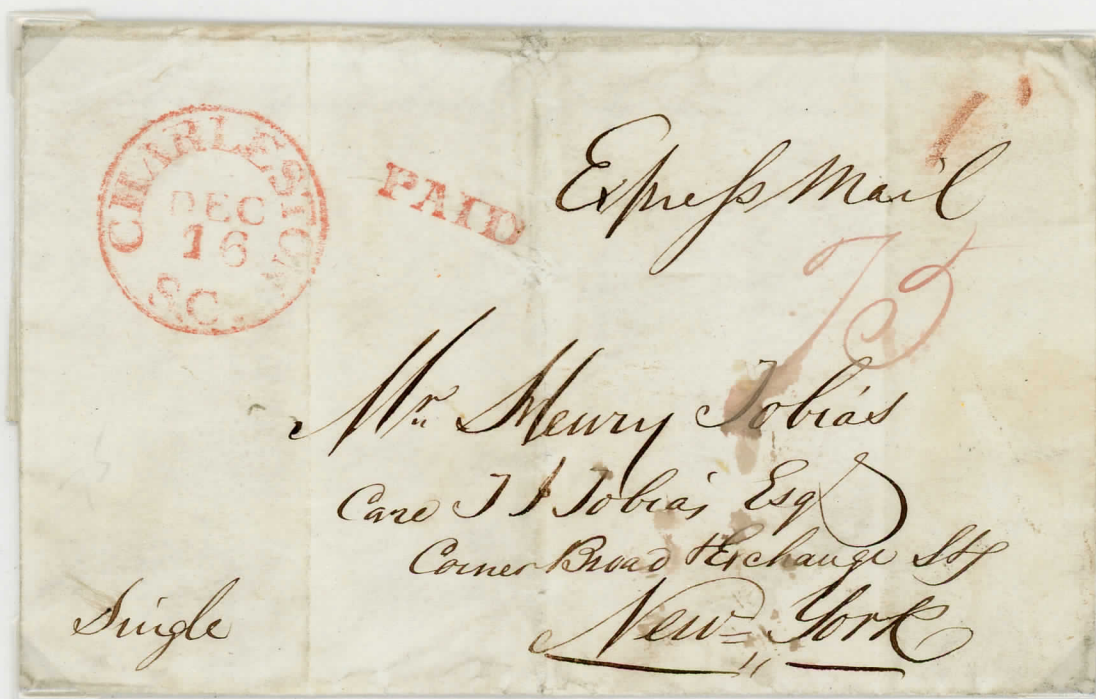 CHARLESTON
DEC
16
S.C.
PAID
Express Mail
75
Mr. Henry Tobias
Care T I Tobias Esq
Corner Broad & Exchange Sts
New York
Single